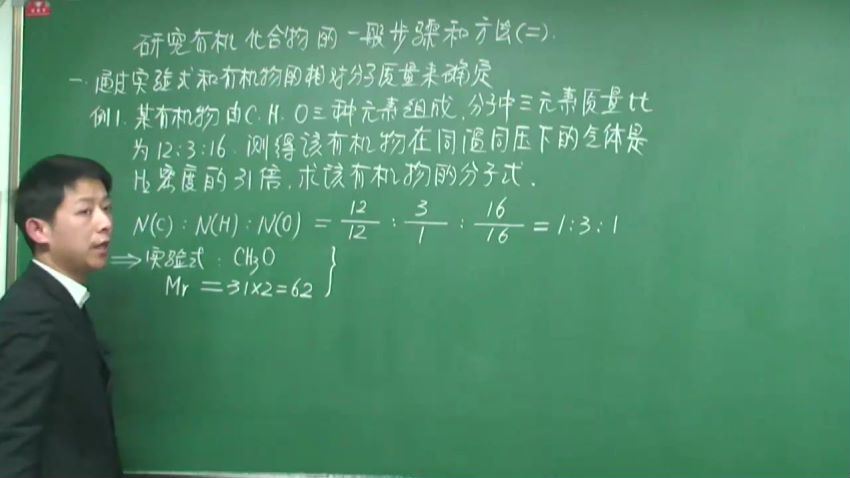 研究有机化合物的一般步骤和方法(二).
一.通过实验式和有机物的相对分子质量来确定
例1.某有机物由C.H.O三种元素组成,分子中三元素质量比
为12:3:16.测得该有机物在同温同压下的气体是
H₂密度的31倍,求该有机物的分子式.
N(C):N(H):N(O) = 12/12 : 3/1 : 16/16 = 1:3:1
⇒实验式:CH₃O
Mr = 31×2=62